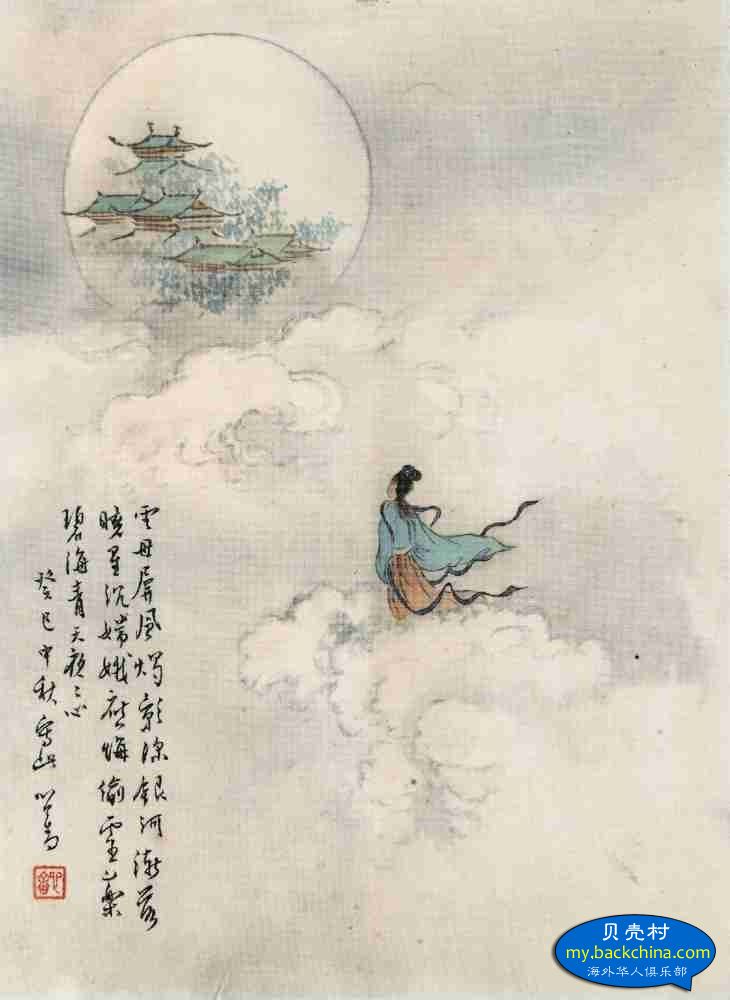 雲母屏風燭影深銀河漸落
曉星沉嫦娥應悔偷靈藥
碧海青天夜〻心
癸巳中秋寫此 心畬
贝壳村
my.backchina.com
海外华人俱乐部